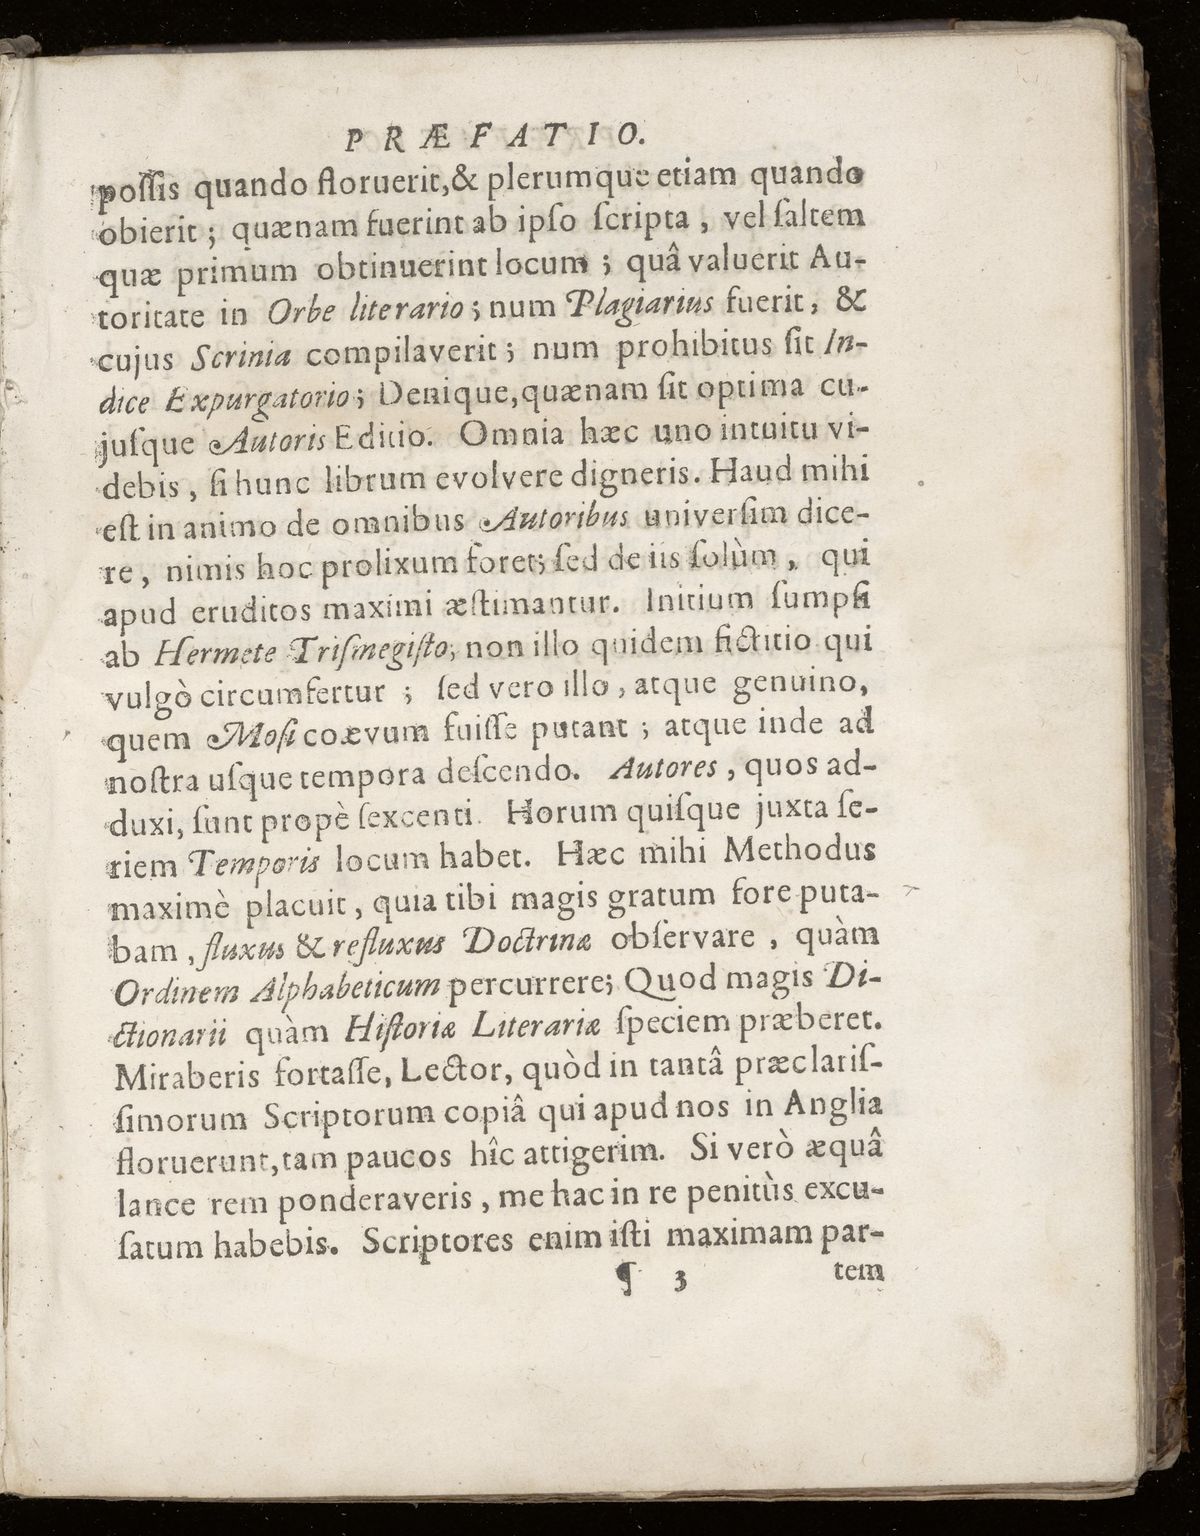 PRÆFATIO.
poſſis quando floruerit, & plerumque etiam quando
obierit; quænam fuerint ab ipſo ſcripta, vel ſaltem
quæ primum obtinuerint locum; quâ valuerit Au-
toritate in Orbe literario; num Plagiarius fuerit, &
cujus Scrinia compilaverit; num prohibitus ſit In-
dice Expurgatorio; Denique, quænam ſit optima cu-
juſque Autoris Editio. Omnia hæc uno intuitu vi-
debis, ſi hunc librum evolvere digneris. Haud mihi
eſt in animo de omnibus Autoribus univerſim dice-
re, nimis hoc prolixum foret; ſed de iis ſolùm, qui
apud eruditos maximi æſtimantur. Initium ſumpſi
ab Hermete Triſmegiſto, non illo quidem fictitio qui
vulgò circumfertur; ſed vero illo, atque genuino,
quem Moſi coævum fuiſſe putant; atque inde ad
noſtra uſque tempora deſcendo. Autores, quos ad-
duxi, ſunt propè ſexcenti. Horum quiſque juxta ſe-
riem Temporis locum habet. Hæc mihi Methodus
maximè placuit, quia tibi magis gratum fore puta-
bam, fluxus & refluxus Doctrinæ obſervare, quàm
Ordinem Alphabeticum percurrere; Quod magis Di-
ctionarii quàm Hiſtoriæ Literariæ ſpeciem præberet.
Miraberis fortaſſe, Lector, quòd in tantâ præclariſ-
ſimorum Scriptorum copiâ qui apud nos in Anglia
floruerunt, tam paucos hîc attigerim. Si verò æquâ
lance rem ponderaveris, me hac in re penitùs excu-
ſatum habebis. Scriptores enim iſti maximam par-
¶ 3 tem